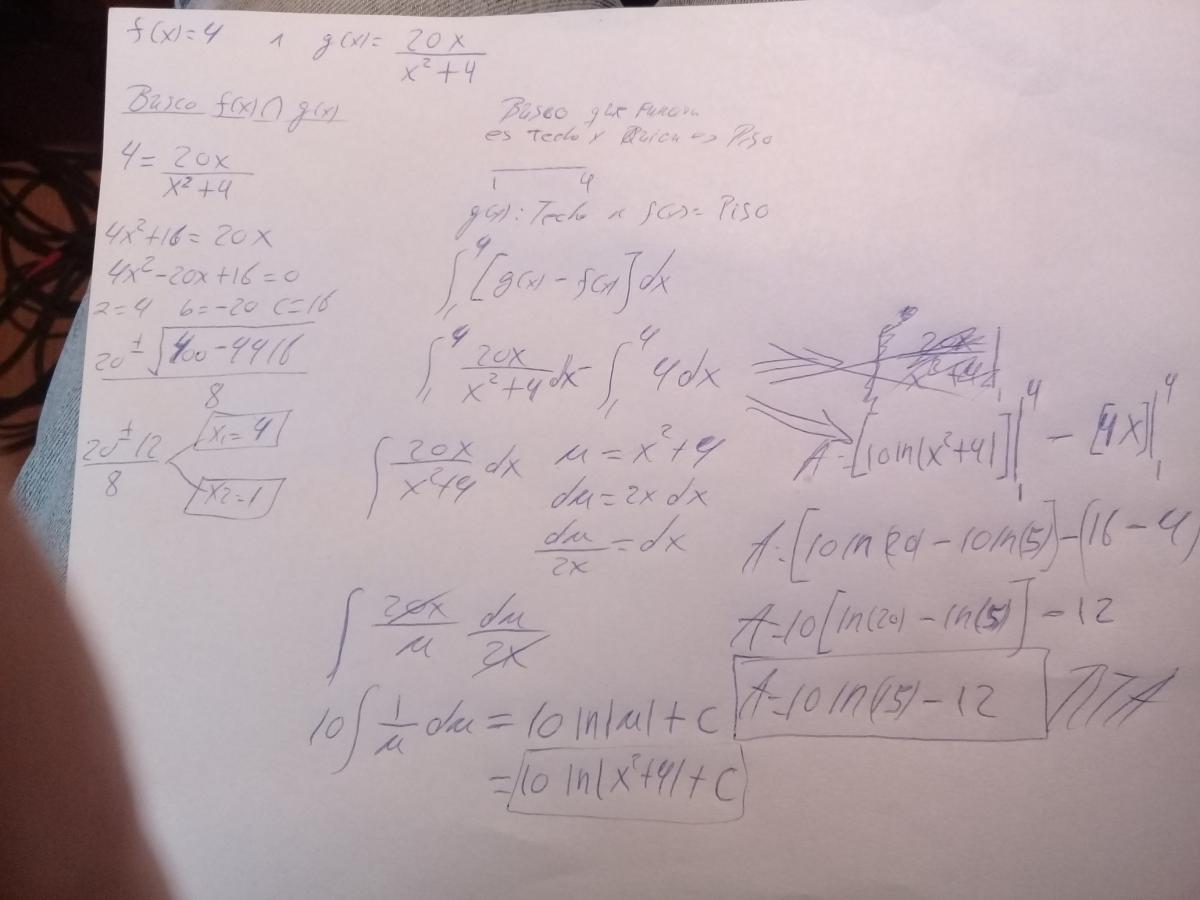 f(x)=4 ∧ g(x)= 20x / x²+4
Busco f(x)∩g(x)
4= 20x / x²+4
4x²+16=20x
4x²-20x+16=0
a=4 b=-20 c=16
20±√400-4416 / 8
20±12 / 8
x1=4
x2=1
Busco que Funcion
es Techo y Quien es Piso
1 4
g(x): Techo ∧ f(x)= Piso
∫₁⁴ [g(x) - f(x)]dx
∫₁⁴ 20x / x²+4 dx - ∫₁⁴ 4dx
∫ 20x / x²+4 dx
u = x²+4
du=2x dx
du / 2x = dx
∫ 20x / u du / 2x
10∫ 1 / u du = 10 ln|u| + C
= 10 ln|x²+4| + C
A=[10 ln|x²+4|]|₁⁴ - [4x]|₁⁴
A=[10 ln(20) - 10 ln(5)] - (16-4)
A=10[ln(20) - ln(5)] - 12
A=10 ln(15) - 12